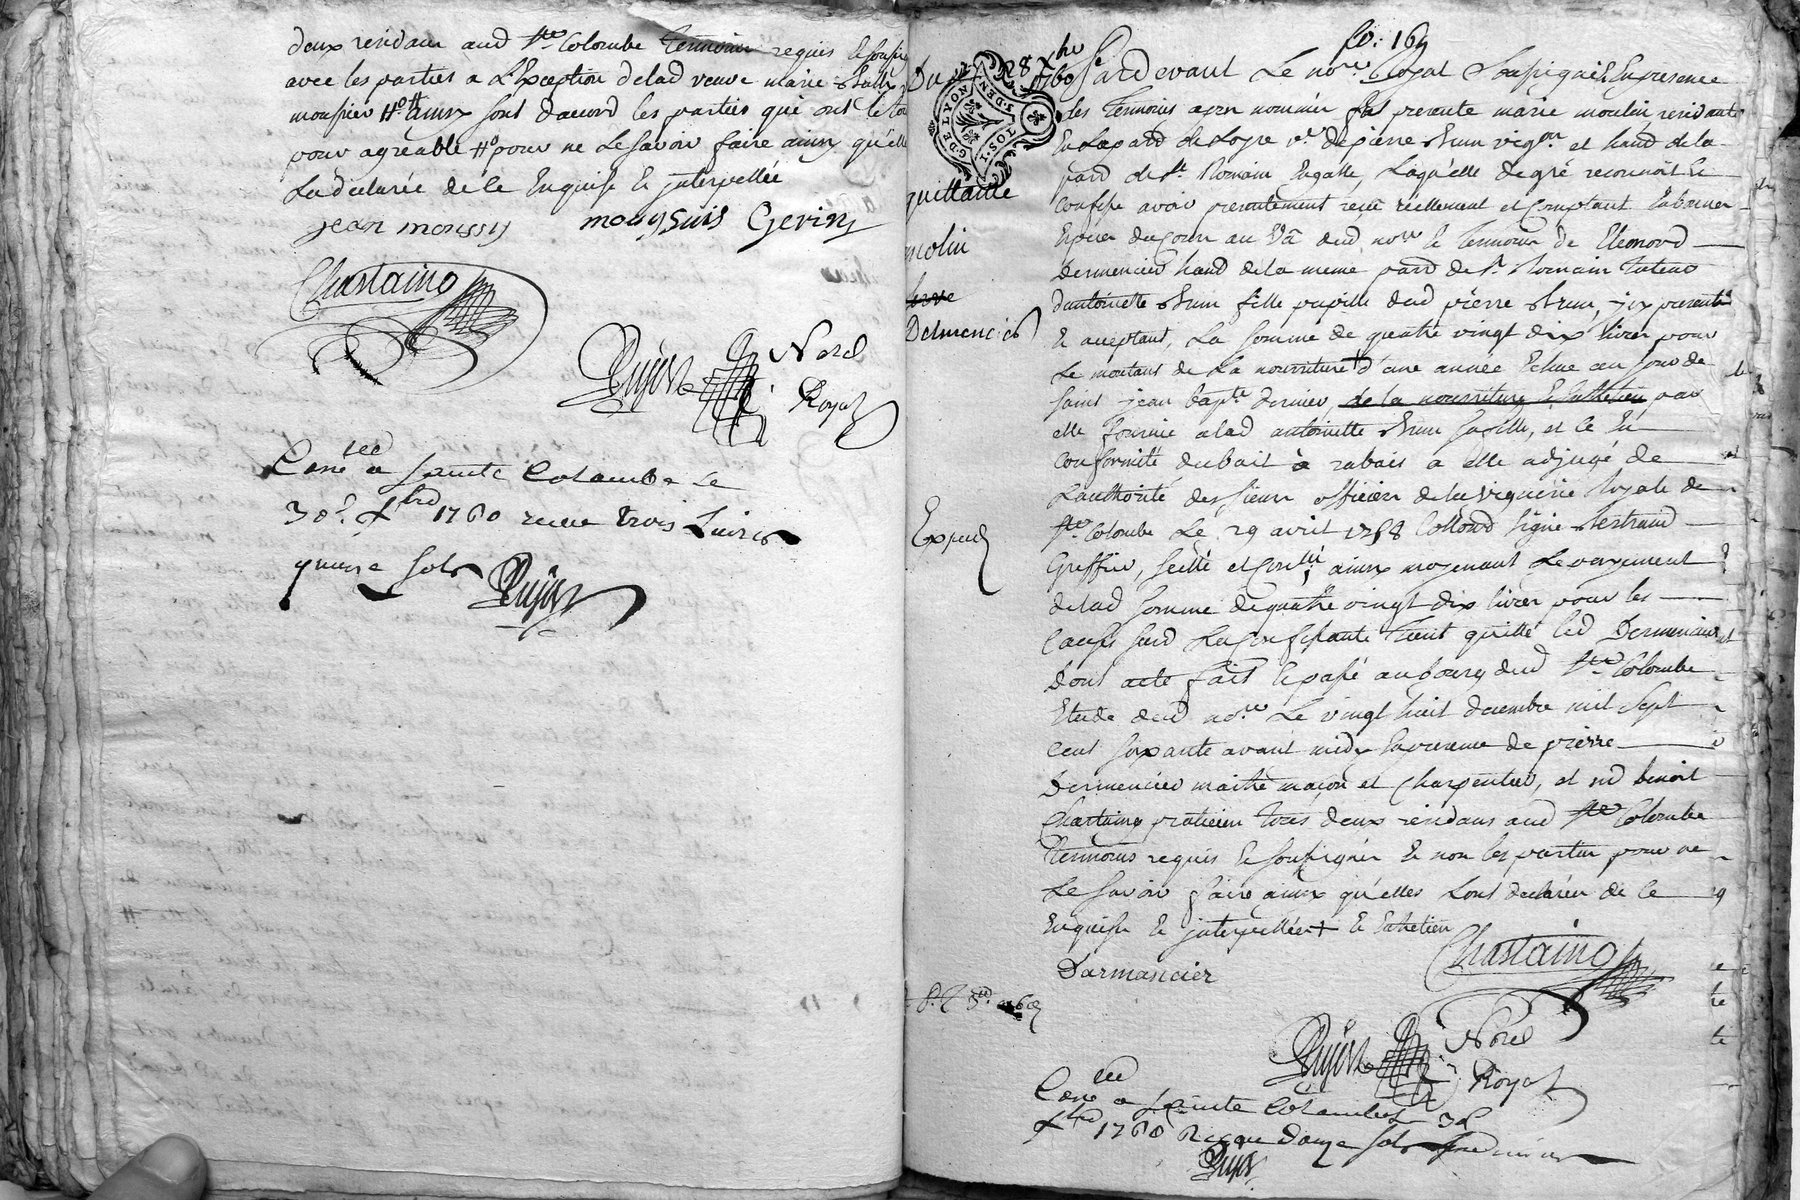 deux residans aud Ste Colombe temoins requis & soussignés
avec les parties a L'Exception de lad veuve marie
moussier ainsy sont d'accord les parties qui ont le tout
pour agréable pour ne Le savoir faire ainsy qu'elle
La declarée de ce Enquise & jnterpellée
jean moussy moussuis Gerin
Chastaing
Dujas Norel
Royal
Conlé a sainte Colombe le
30e Xbre 1760 receu trois Livres
quinze sols Dujas
fo: 169
Du 28 Xbre
1760
G. DE LYON
quittance
molin
Dermencier
Exped
Pardevant Le nore Royal soussigné & En presence
des temoins apres nommés fut presente marie moulin residante
En La pard de Loyre ve de pierre Brun vigon et hand de la
pard de St Romain Engalle, Laquelle de gré reconnoit &
confesse avoir presentement receu réellement et Comptant En bonnes
Espèces du Cours au Vû dud nore & temoins de Eleonord
Dermencier hand de la meme pard de St Romain tuteur
d'antoinette Brun fille pupille dud pierre Brun, jcy present
& acceptant, La somme de quatre vingt dix livres pour
Le montant de La nourriture + d'une année Echue au jour de
saint jean bapte dernier, de la nourriture & Entretien par
elle fournie a lad antoinette Brun sa fille, et ce En
conformité du bail a rabais a elle adjugé de
L'authorité des sieurs officiers de la viguerie Royale de
Ste Colombe Le 29 avril 1758 Collond signé Bertrand
Greffier, scellé et Conllé ainsy moyenant Le payement
de lad somme de quatre vingt dix livres pour les
Causes sard La Confessante tient quitté led Dermencier
Dont acte fait & passé au bourg dud Ste Colombe
Etude dud nore Le vingt huit decembre mil sept
cent soixante avant midy En presence de pierre
Dermencier maitre maçon et Charpentier, et sd benoit
Chastaing praticien tous deux residans aud Ste Colombe
temoins requis & soussignés & non les parties pour ne
Le savoir faire ainsy qu'elles L'ont declarées de ce
Enquises & jnterpellées + & Entretien
Darmancier Chastaing
Dujas Norel
Royal
Conlé a sainte Colombe le 30
Xbre 1760 Receu douze sols
Dujas